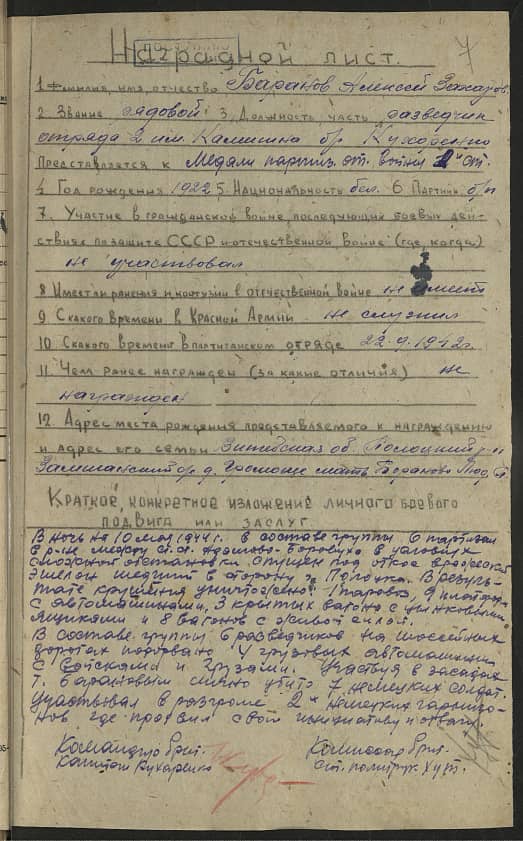 Наградной лист.
7
1 Фамилия, имя, отчество Баранов Алексей Захаров.
2. Звание рядовой 3. Должность, часть разведчик
отряда 2 им. Калинина бр. Кухаренко
Представляется к Медали партиз. от. войны ст.
4 Год рождения 1922 5. Национальность бел. 6 Партийн. б/п
7. Участие в гражданской войне, последующих боевых дей-
ствиях по защите СССР и отечественной войне (где, когда)
не участвовал
8 Имеет ли ранения и контузии в отечественной войне не имеет
9 С какого времени в Красной Армии не служил
10. С какого времени в партизанском отряде 22.9.1942г.
11. Чем ранее награжден (за какие отличия) не
награжден
12. Адрес места рождения представляемого к награждению
и адрес его семьи обл. Полоцкий р-н
д. мать Баранова
Краткое, конкретное изложение личного боевого
подвига или заслуг
В ночь на 10 мая 1944 г. в составе группы 6 партизан
в р-не между ст. ст. Адамово-Боровуха в условиях
сложной обстановки спущен под откос вражеский
эшелон шедший в сторону г. Полоцка. В резуль-
тате крушения уничтожено: 1 паровоз, 9 платформ
с автомашинами, 3 крытых вагона с
ящиками и 8 вагонов с живой силой.
В составе группы 6 разведчиков на шоссейных
дорогах подорвано 4 грузовых автомашины
с войсками и грузами. Участвуя в засадах
т. Барановым лично убито 7 немецких солдат.
Участвовал в разгроме 2х немецких гарнизо-
нов где проявил свою инициативу и отвагу.
Командир бриг. Комиссар бриг.
капитан Кухаренко ст. политрук